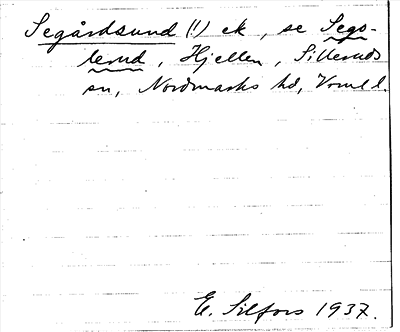 Segårdsund (!!) ek, se Segs-
lerud, Hjellen, Silleruds
sn, Nordmarks hd, Vrml l.
E. Silfors 1937.